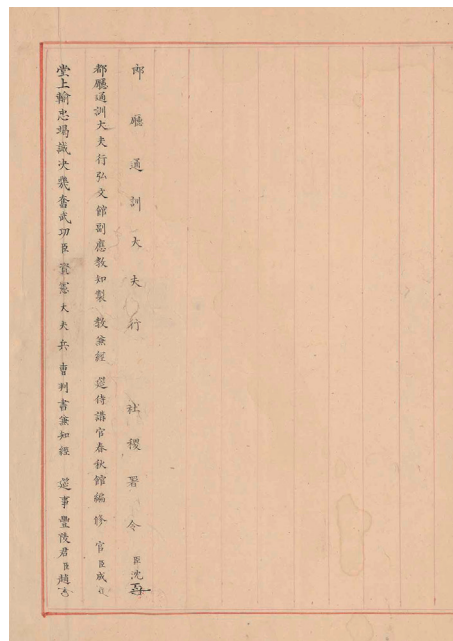 郎廳通訓大夫行 社稷署令臣沈
都廳通訓大夫行弘文館副應教知製 教兼經 筵侍講官春秋館編 修 官臣成
堂上輸忠竭誠决幾奮武功臣資憲大夫兵曹判書兼知經 筵事豐陵君臣趙